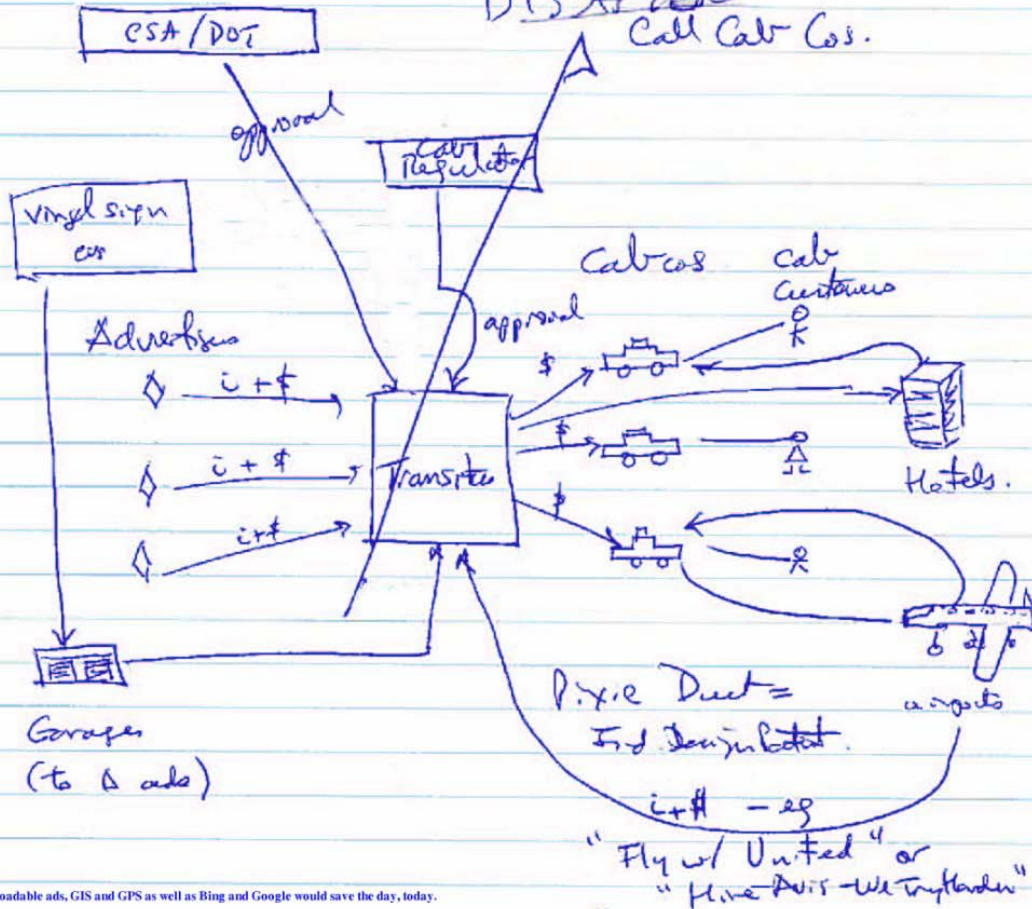 CSA/DOT
Call Cab Cos.
approval
Cab
Regulator
Vinyl sign
cos
Cab cos
cab
Customers
Advertisers
approval
$
i + $
$
i + $
Transiter
Hotels.
$
i + $
Pixie Dust =
Ind. Design Patent.
airports
Garages
(to Δ ads)
i + $ - eg
"Fly w/ United" or
"Hire Avis - We Try Harder"
oadable ads, GIS and GPS as well as Bing and Google would save the day, today.